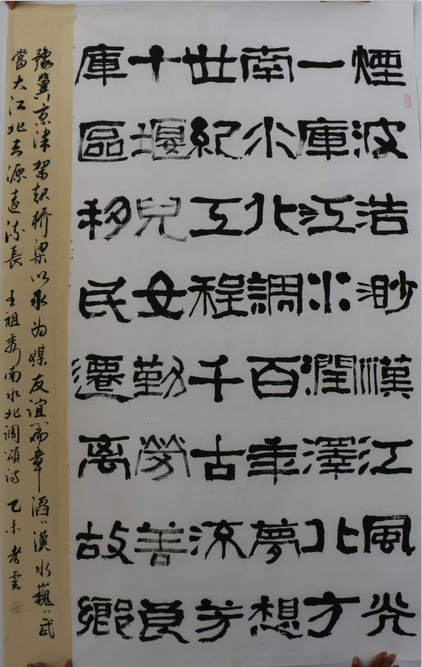 煙波浩渺漢江風光
一庫江水潤澤北方
南水北調百年夢想
世紀工程千古流芳
十堰兒女勤勞善良
庫區移民遷离故鄉
豫冀京津架起桥梁以水为媒友谊篇章滔〻漢水巍〻武
當大江北去源遠流長 王祖 南水北调頌诗 乙未